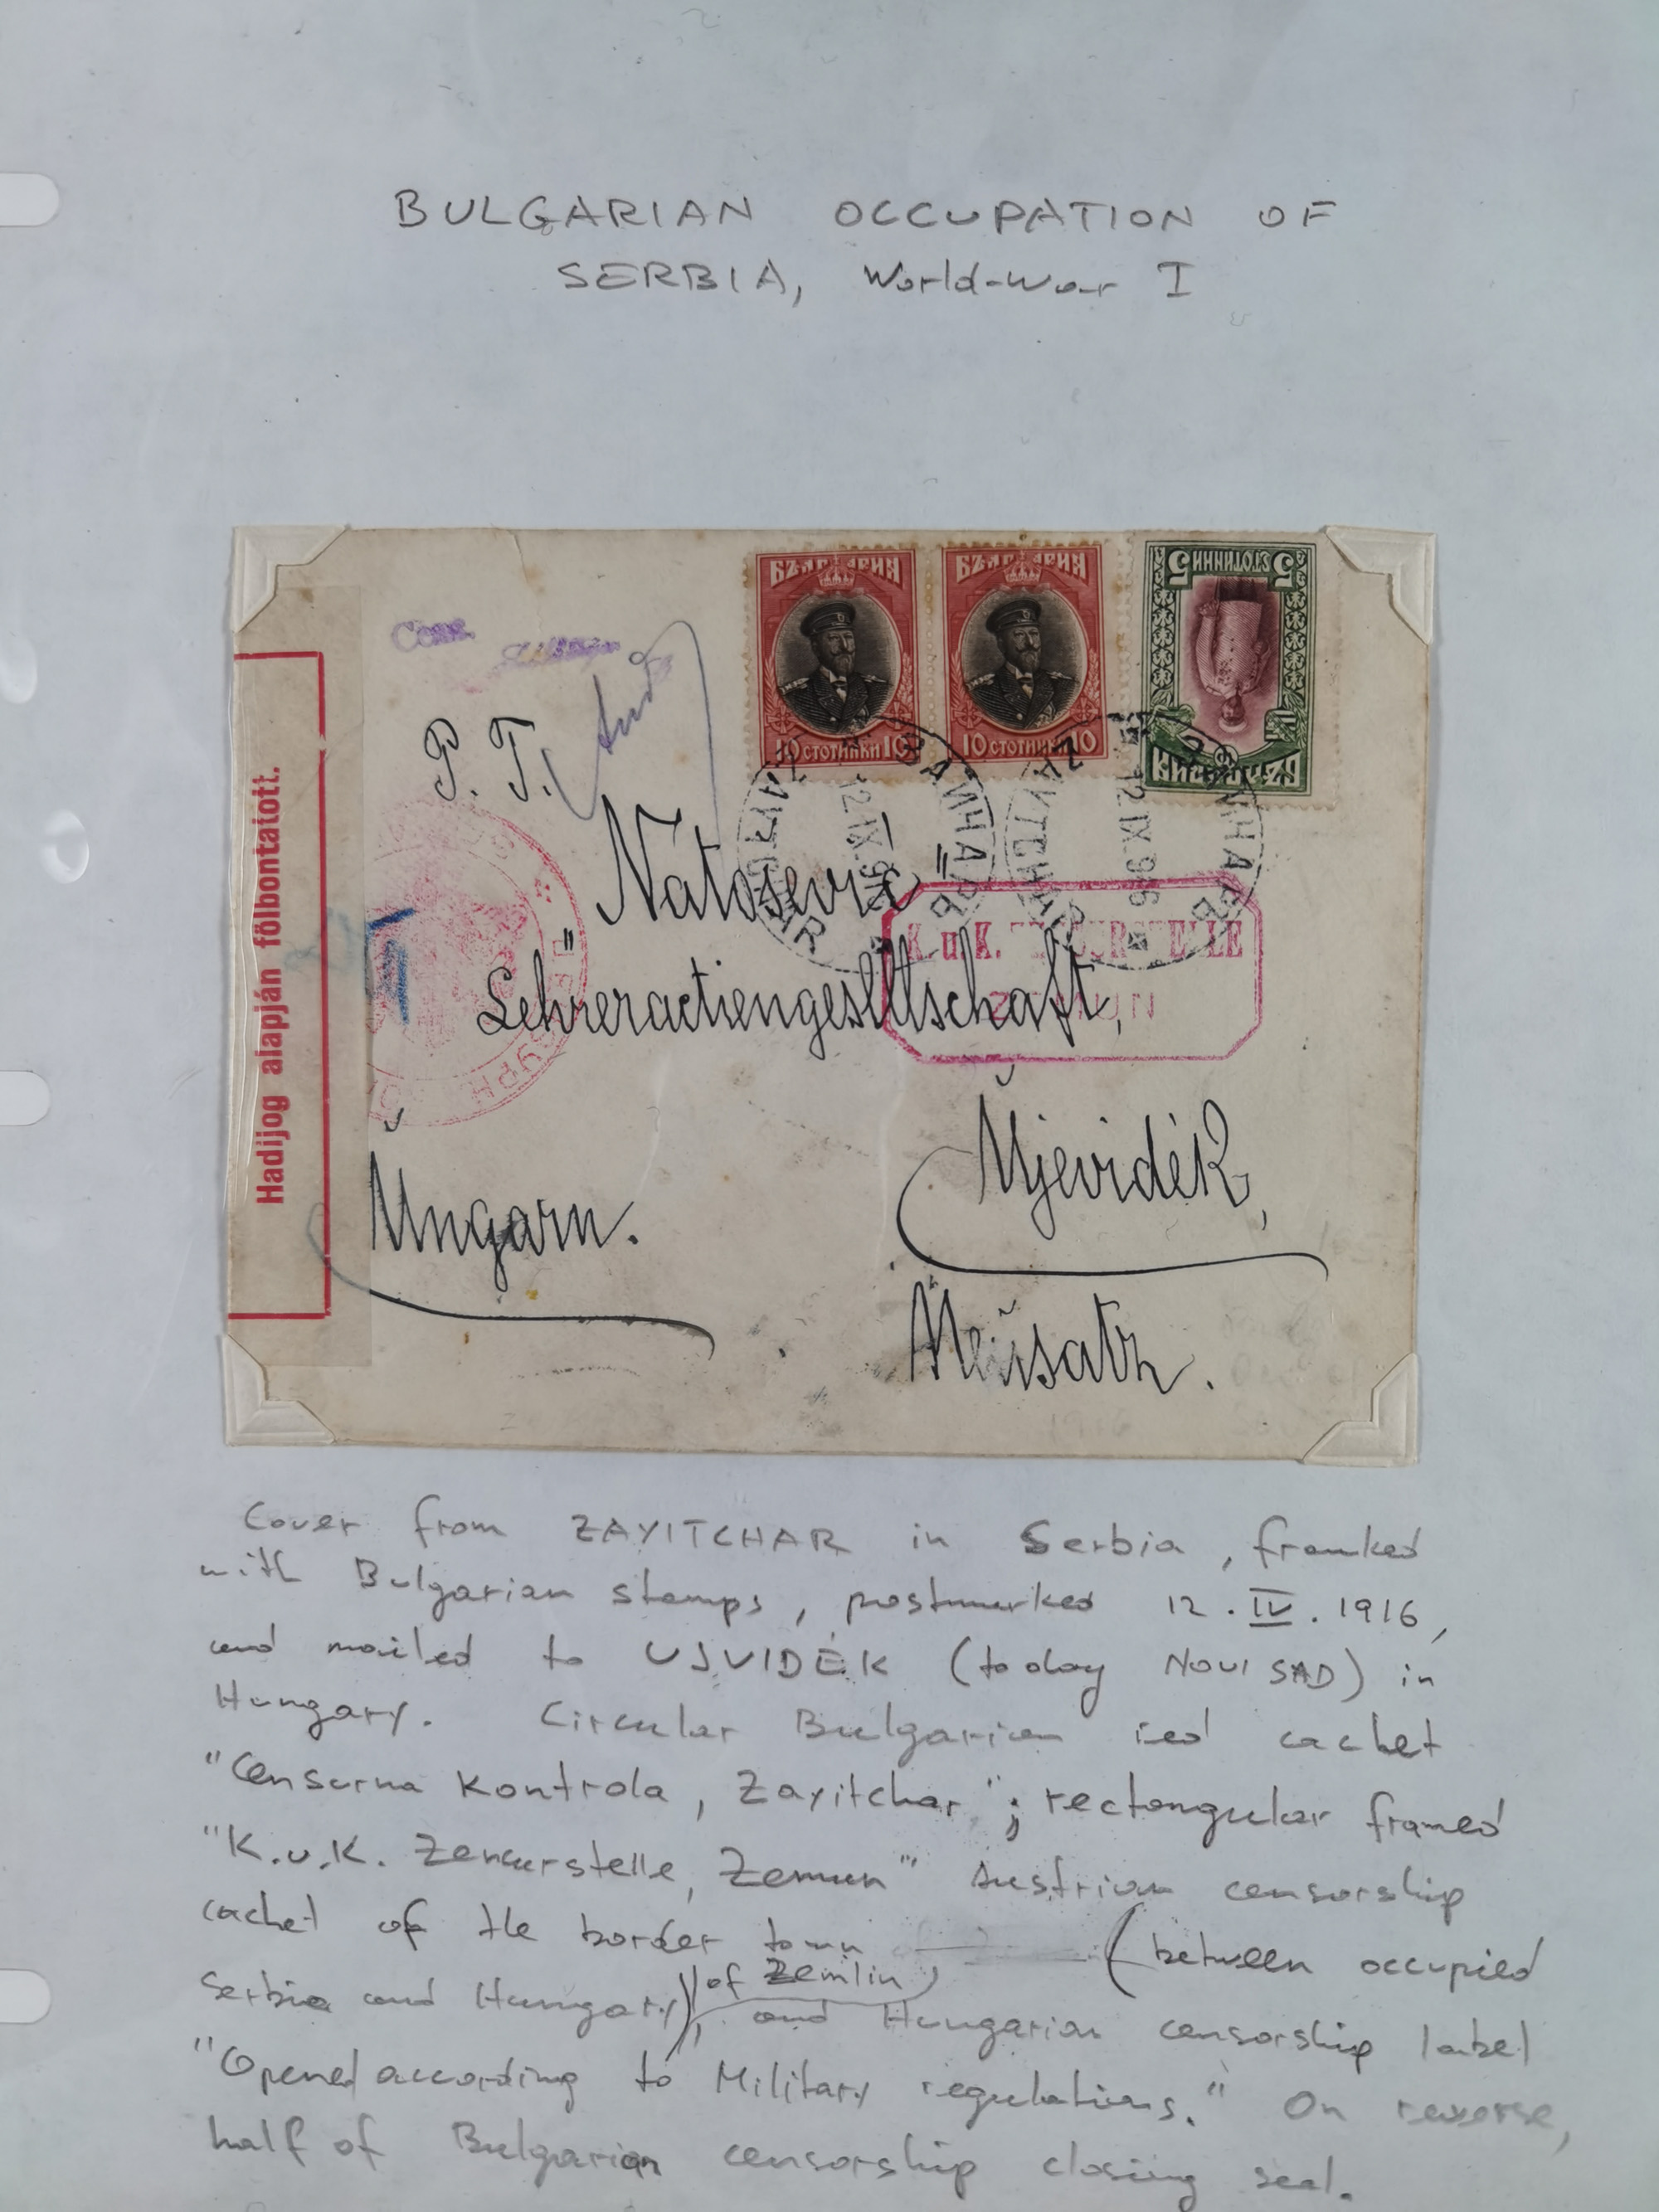 BULGARIAN OCCUPATION OF
SERBIA, World-War I
БЪЛГАРИЯ
10 СТОТИНКИ 10
БЪЛГАРИЯ
10 СТОТИНКИ 10
5 СТОТИНКИ 5
БЪЛГАРИЯ
P. T.
"Natošević"
Lehreractiengesellschaft,
ZAYITCHAR
ЗАИЧАРЪ
12.IX.916
ZAYITCHAR
ЗАИЧАРЪ
12.IX.916
K. u. K.
ZEMUN
Hadijog alapján fölbontatott.
Ujevidék,
Ungarn.
Neusatz.
Cover from ZAYITCHAR in Serbia, franked
with Bulgarian stamps, postmarked 12.IV.1916,
and mailed to UJVIDÉK (today NOVI SAD) in
Hungary. Circular Bulgarian red cachet
"Censurna Kontrola, Zayitchar"; rectangular framed
"K.u.K. Zensurstelle, Zemun" Austrian censorship
cachet of the border town (between occupied
Serbia and Hungary) of Zemlin, and Hungarian censorship label
"Opened according to Military regulations." On reverse,
half of Bulgarian censorship closing seal.